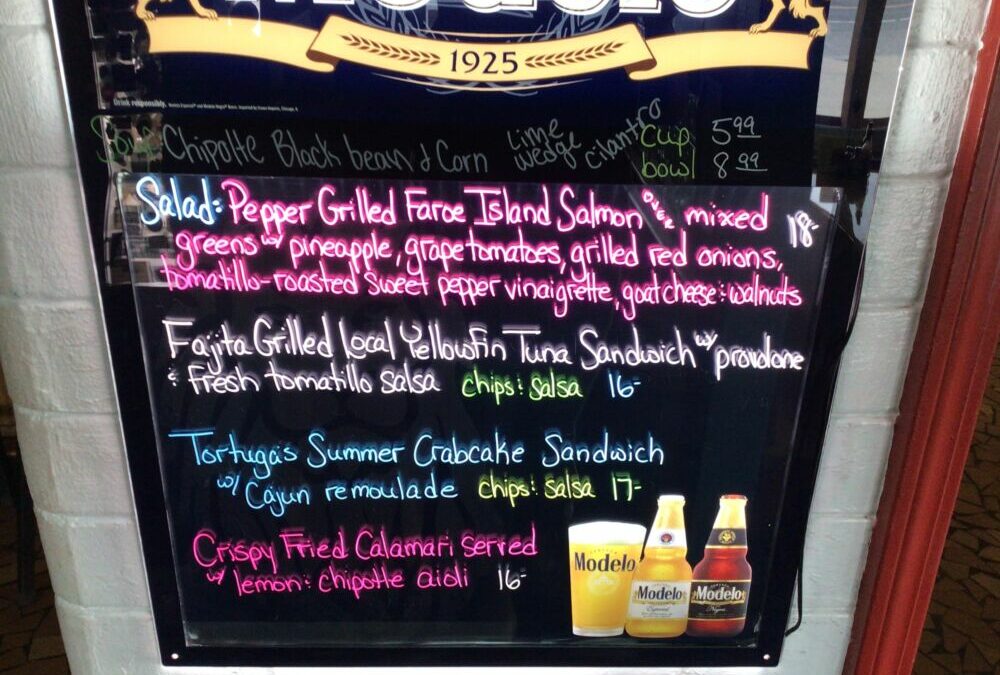 Modelo
1925
Drink responsibly.
Soup Chipotle Black bean & Corn lime wedge cilantro cup 5.99
bowl 8.99
Salad: Pepper Grilled Faroe Island Salmon over mixed 18-
greens w/ pineapple, grape tomatoes, grilled red onions,
tomatillo-roasted sweet pepper vinaigrette, goat cheese & walnuts
Fajita Grilled Local Yellowfin Tuna Sandwich w/ provolone
& fresh tomatillo salsa chips & salsa 16-
Tortuga's Summer Crabcake Sandwich
w/ Cajun remoulade chips & salsa 17-
Crispy Fried Calamari served
w/ lemon & chipotle aioli 16-
Modelo
Modelo
Especial
Modelo
Negra